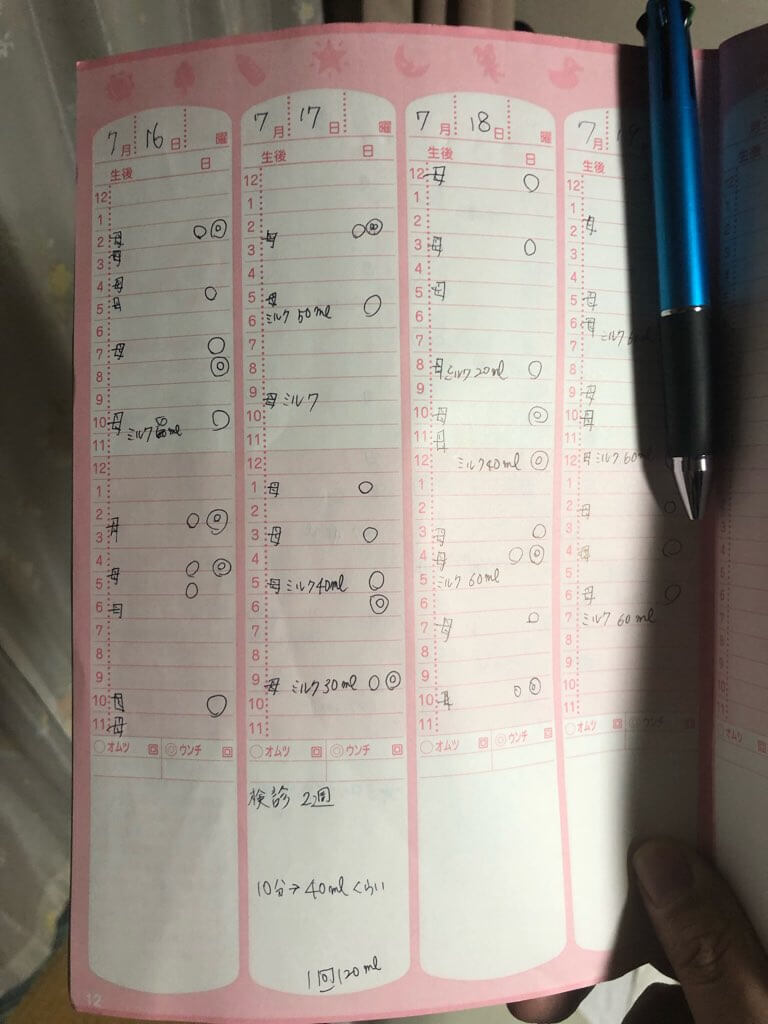 7月 16日 曜
生後 日
12
1
2 母 ○ ◎
3 母
4 母
5 母 ○
6
7 母 ○
8 ◎
9
10 母 ○
11 ミルク
12
1
2 母 ○ ◎
3
4
5 母 ○ ◎
○
6 母
7
8
9
10 母 ○
11 母
○オムツ 回 ◎ウンチ 回
7月 17日 曜
生後 日
12
1
2 母 ○ ◎
3
4
5 母 ○
6 ミルク 50ml
7
8
9 母 ミルク
10
11
12
1 母 ○
2
3 母 ○
4
5 母 ミルク 40ml ○
6 ◎
7
8
9 母 ミルク 30ml ○ ◎
10
11
○オムツ 回 ◎ウンチ 回
検診 2週
10分→40mlくらい
1回120ml
7月 18日 曜
生後 日
12 母 ○
1
2
3 母 ○
4
5 母
6
7
8 母 ミルク 20ml ○
9
10 母 ◎
11 母
12 ミルク 40ml ◎
1
2
3 母 ○
4 母 ○ ◎
5 ミルク 60ml
6
7 母 ○
8
9
10 母 ○ ◎
11
○オムツ 回 ◎ウンチ 回
7月
生後
12
1
2 母
3
4
5 母
6 母 ミルク
7
8
9 母
10 母
11
12 母 ミルク 60ml ○
1
2 母 ○
3
4 母 ○
5
6 母 ○
7 ミルク 60ml
8
9
10
11
○オムツ 回 ◎ウンチ
12